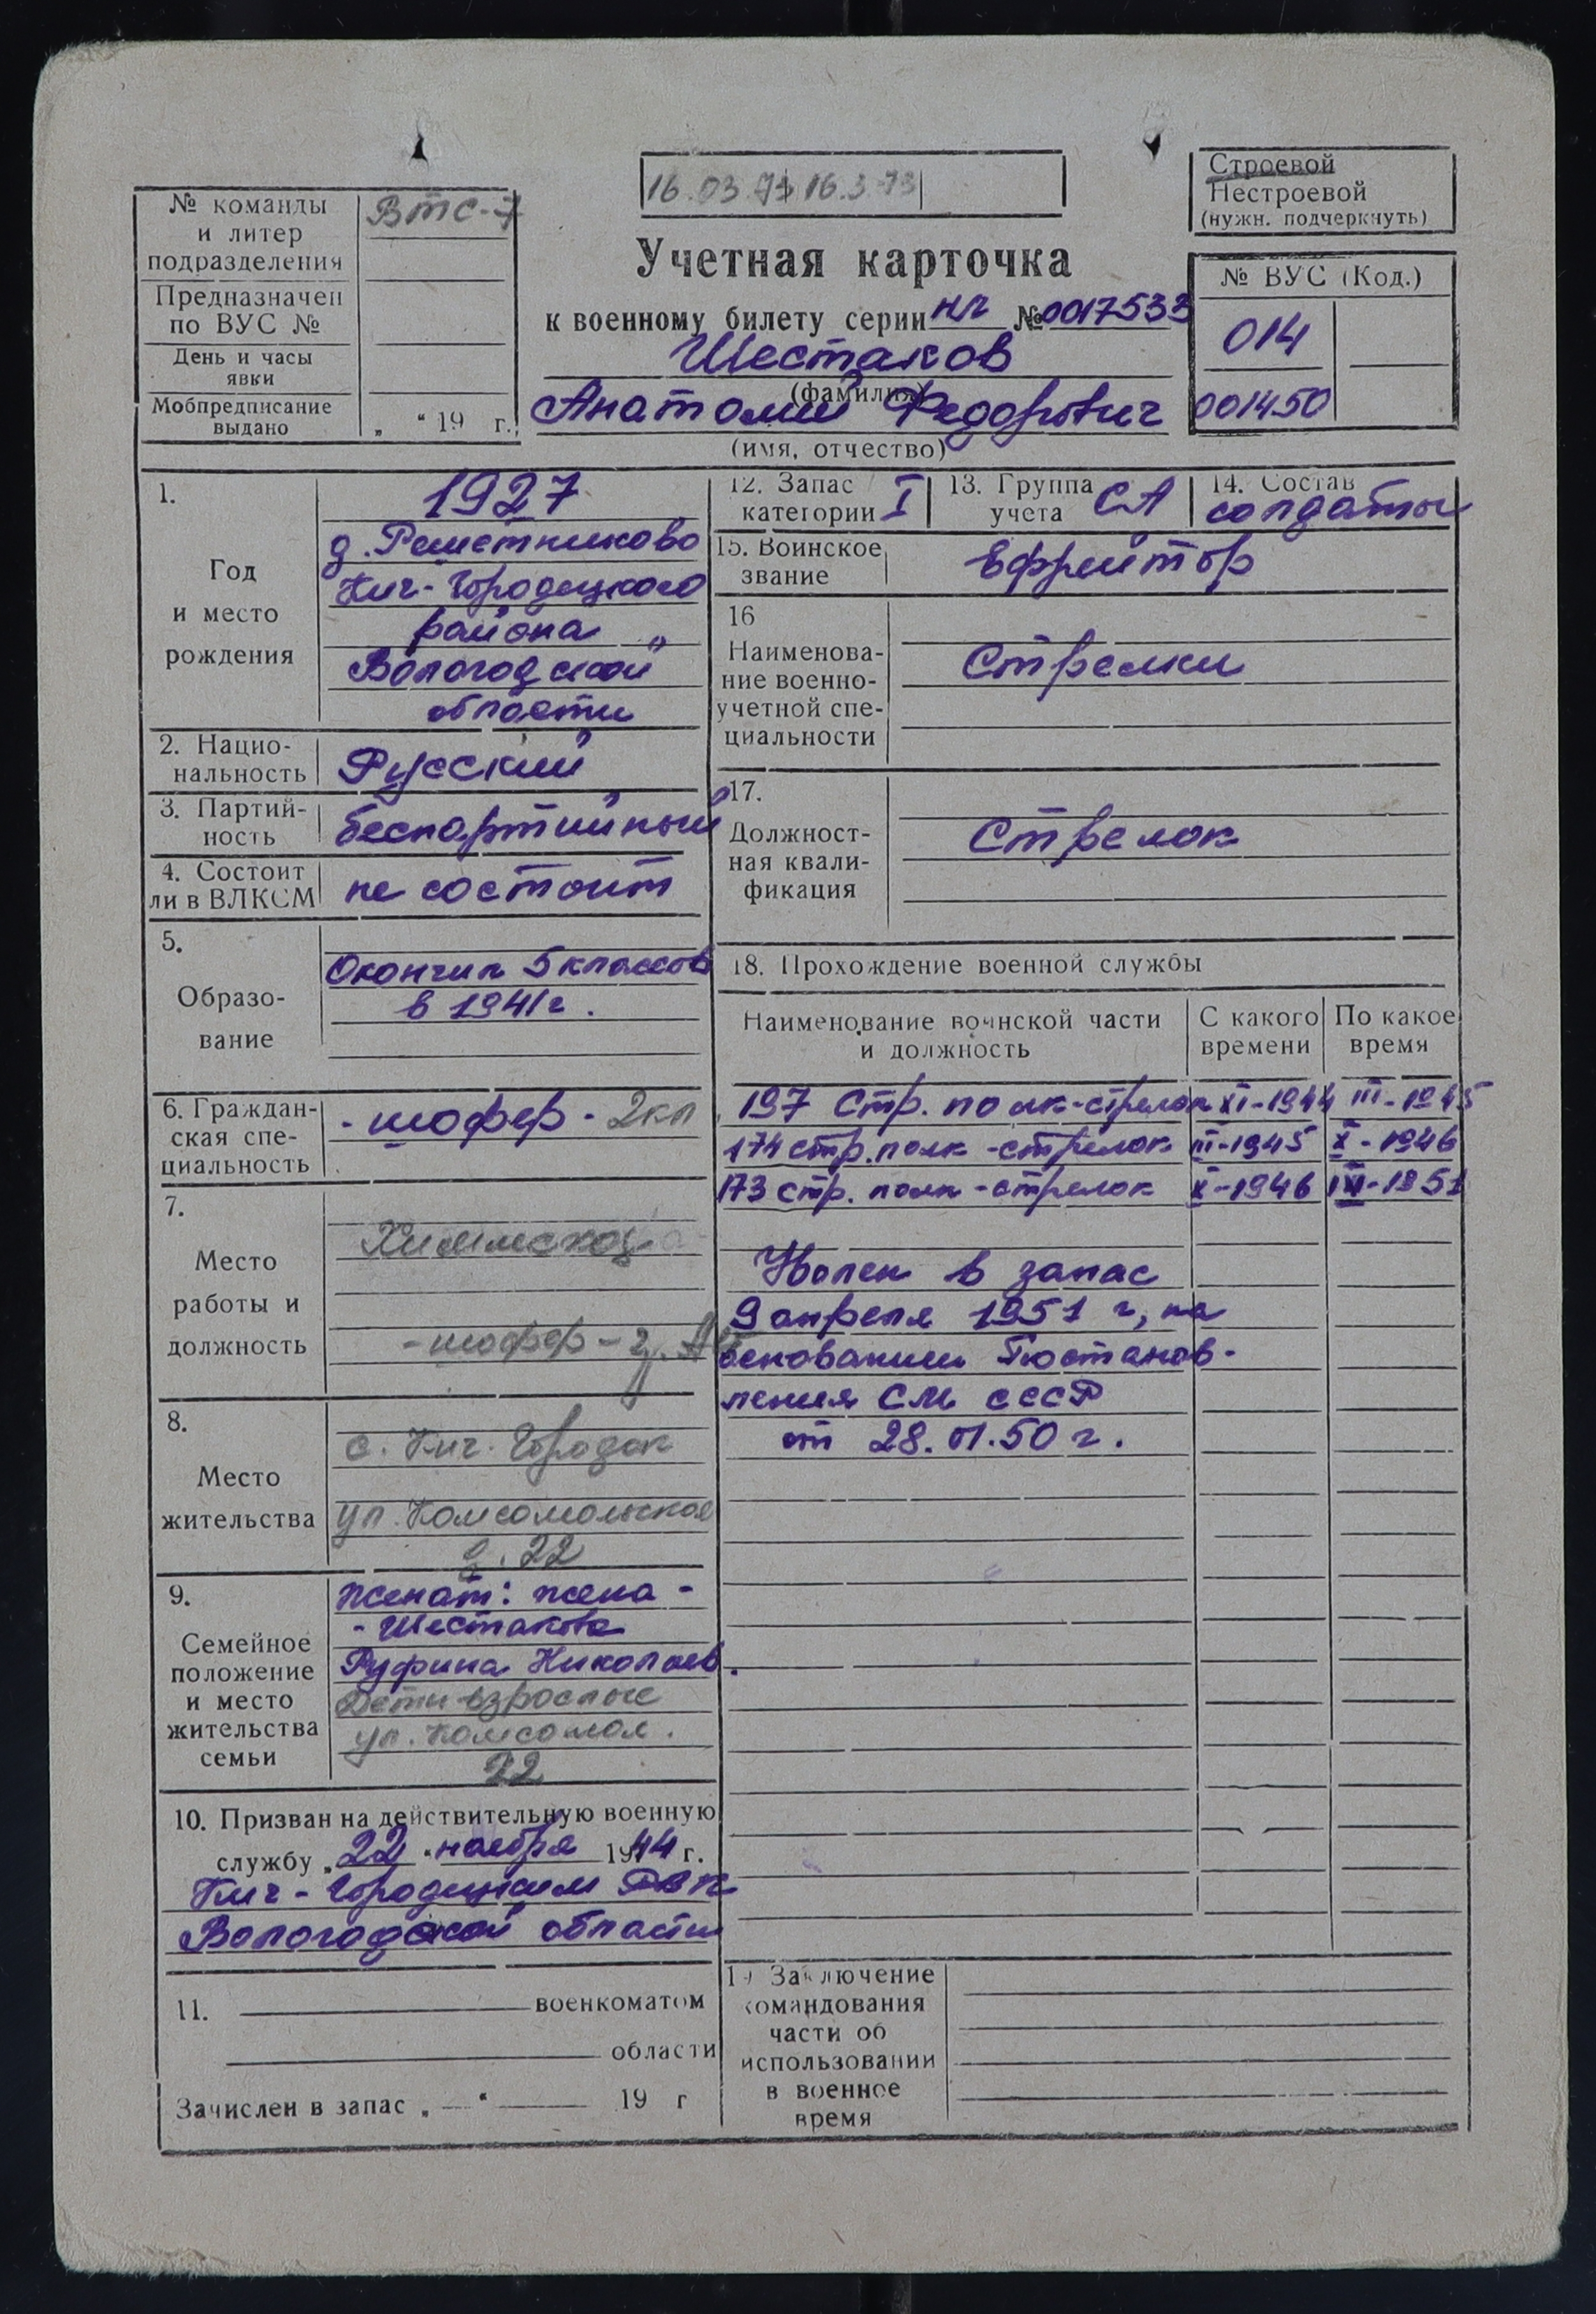 16.03.71 16.3.73
Строевой
Нестроевой
(нужн. подчеркнуть)
№ команды
и литер
подразделения
ВТС-7
Предназначен
по ВУС №
День и часы
явки
Мобпредписание
выдано
„ “ 19 г.
Учетная карточка
к военному билету серии НГ № 0017533
Шестаков
(фамилия)
Анатолий Федорович
(имя, отчество)
№ ВУС (Код.)
014
001450
1.
Год
и место
рождения
1927
д. Решетниково
Кич-Городецкого
района
Вологодской
области
2. Нацио-
нальность
Русский
3. Партий-
ность
беспартийный
4. Состоит
ли в ВЛКСМ
не состоит
5.
Образо-
вание
Окончил 5 классов
в 1941 г.
6. Граждан-
ская спе-
циальность
- шофер - 2кл
7.
Место
работы и
должность
- шофер -
8.
Место
жительства
с. Кич. Городок
ул. Комсомольская
д. 22
9.
Семейное
положение
и место
жительства
семьи
Женат: жена -
- Шестакова
Руфина Николаев.
Дети взрослые
ул. Комсомол.
22
10. Призван на действительную военную
службу „22“ ноября 1944 г.
Кич-Городецким РВК
Вологодской области
11. военкоматом
области
Зачислен в запас „ “ 19 г
12. Запас
категории I
13. Группа
учета СА
14. Состав
солдаты
15. Воинское
звание
Ефрейтор
16
Наименова-
ние военно-
учетной спе-
циальности
Стрелки
17.
Должност-
ная квали-
фикация
Стрелок
18. Прохождение военной службы
Наименование воинской части
и должность
С какого
времени
По какое
время
197 Стр. полк-стрелок XI-1944 III-1945
174 стр. полк - стрелок III-1945 X-1946
173 стр. полк - стрелок X-1946 III-1951
Уволен в запас
9 апреля 1951 г, на
основании Постанов-
ления СМ СССР
от 28.01.50 г.
19 Заключение
командования
части об
использовании
в военное
время